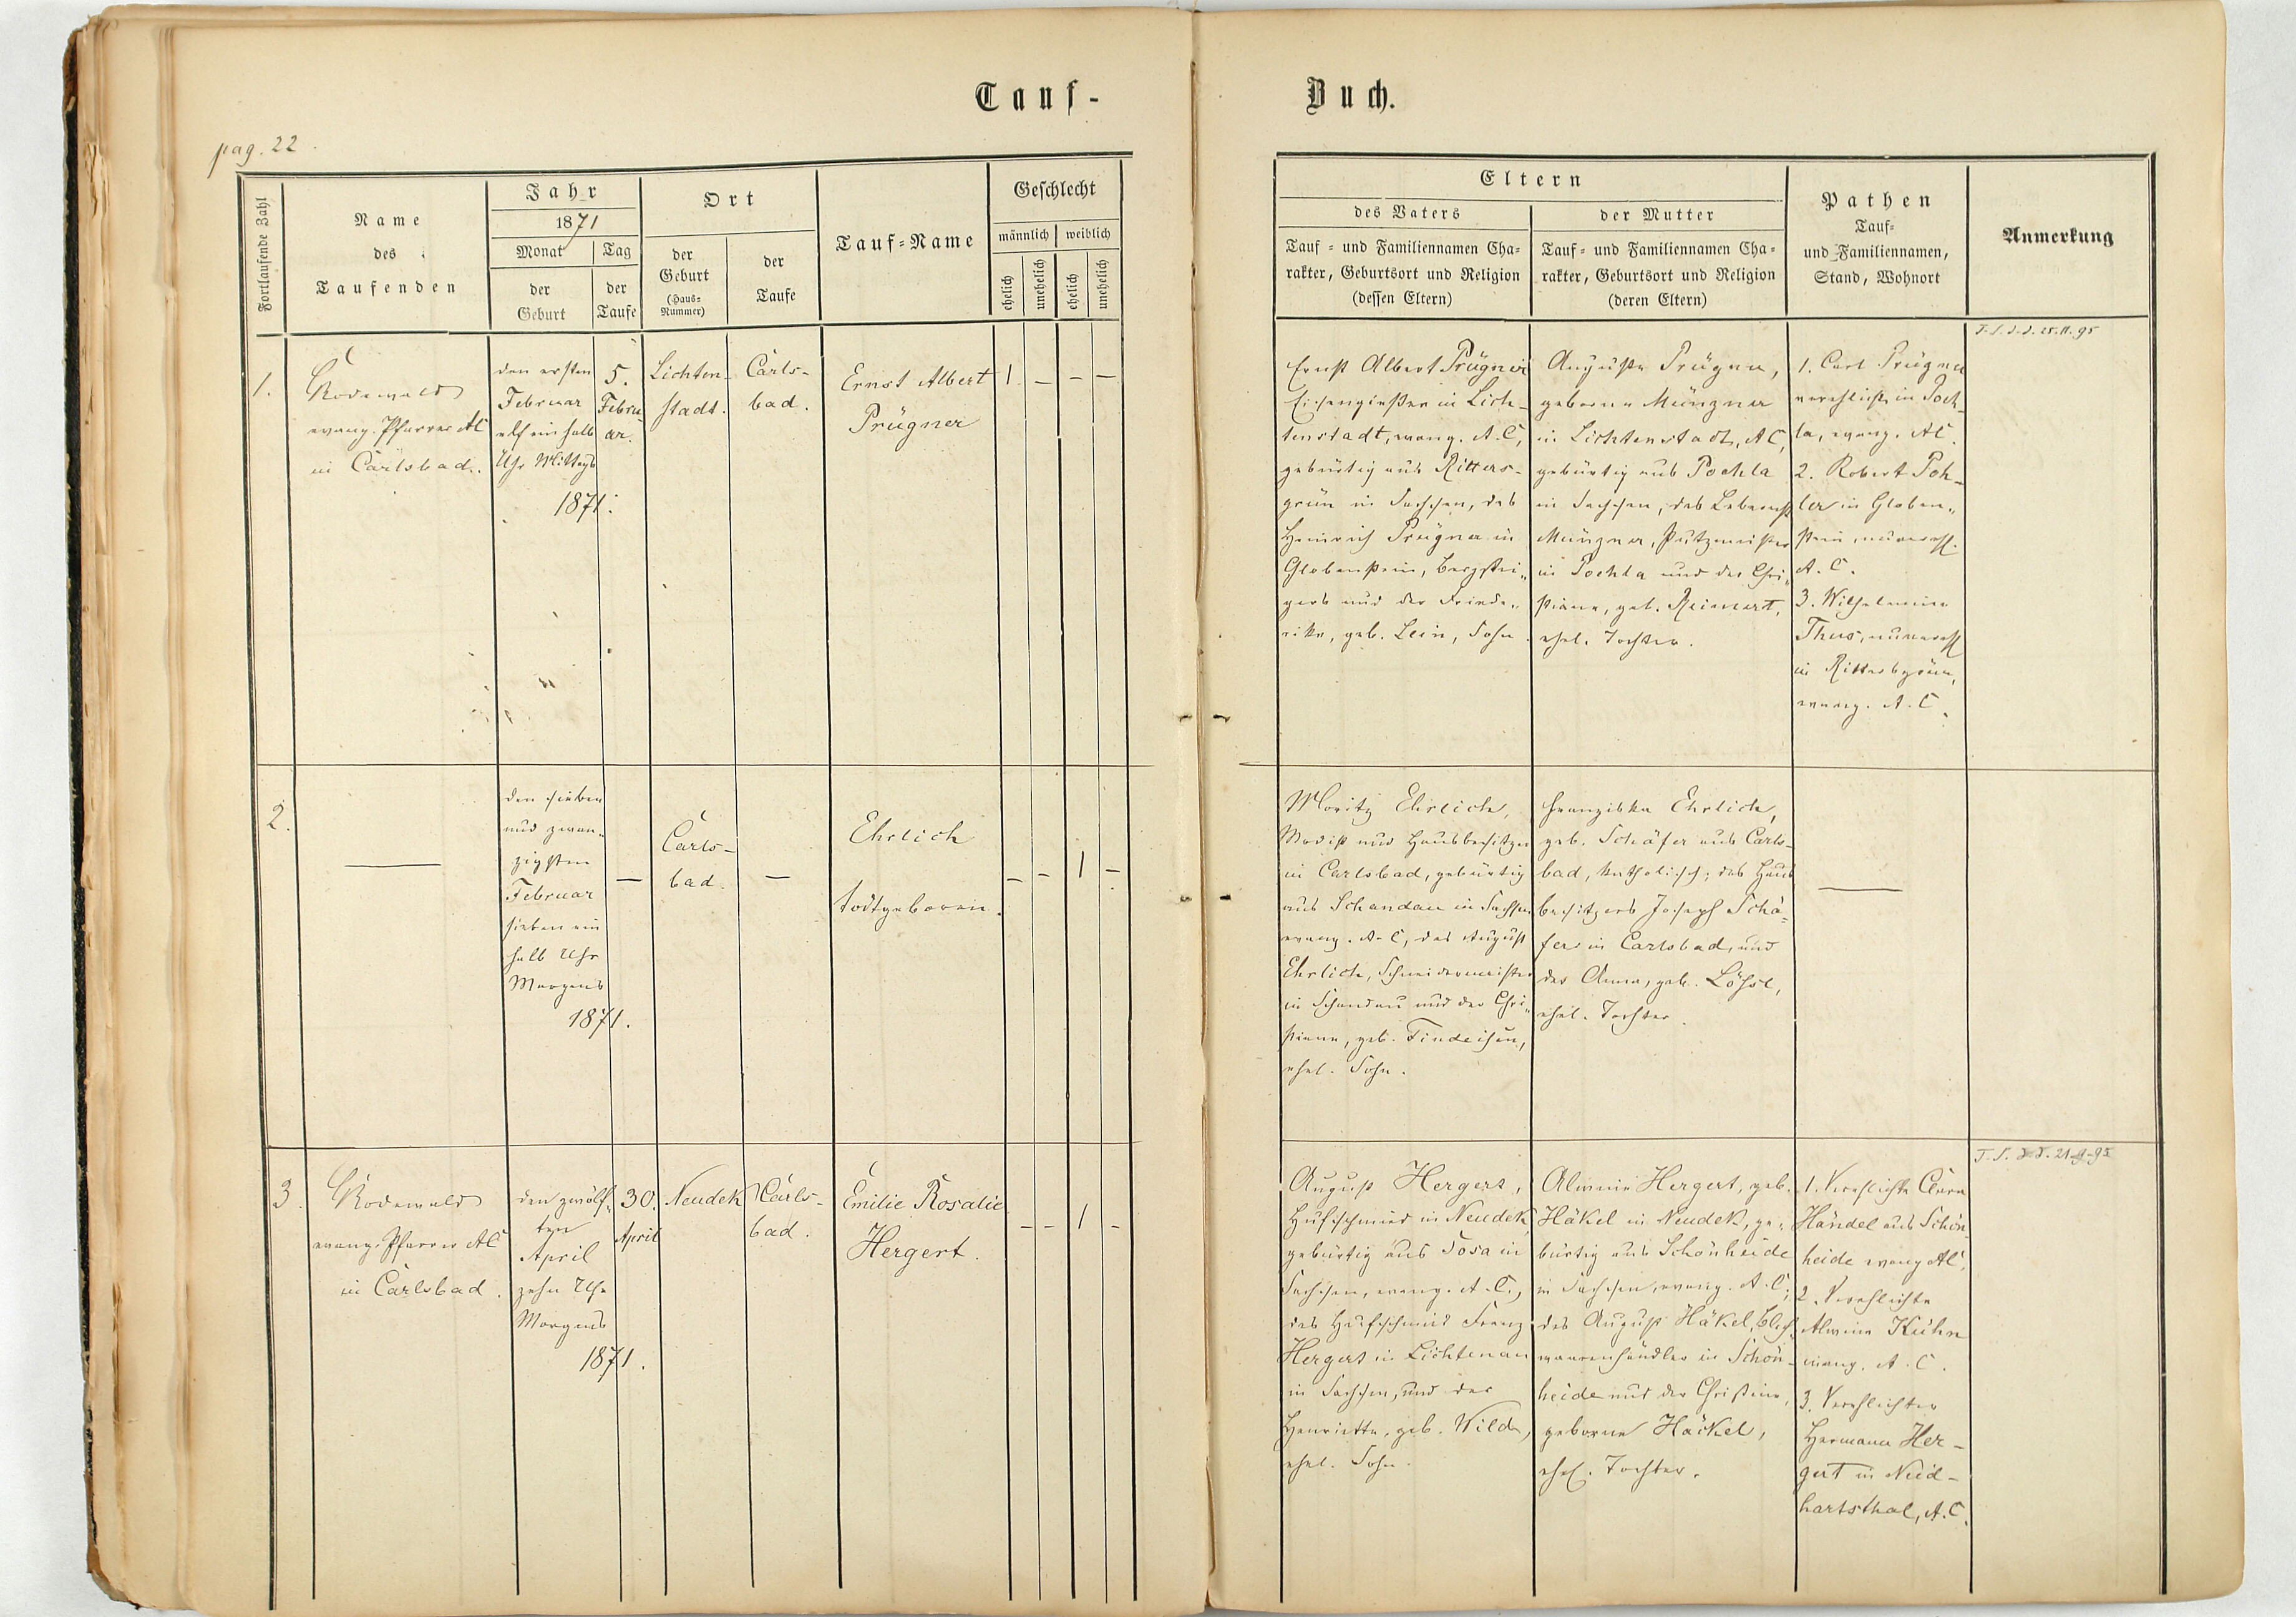 Tauf-
Buch.
pag. 22.
Fortlaufende Zahl
Name
des
Taufenden
Jahr
1871
Monat
der
Geburt
Tag
der
Taufe
Ort
der
Geburt
(Haus-
Nummer)
der
Taufe
Tauf-Name
Geschlecht
männlich
weiblich
ehelich
unehelich
ehelich
unehelich
Eltern
des Vaters
Tauf- und Familiennamen Cha-
rakter, Geburtsort und Religion
(dessen Eltern)
der Mutter
Tauf- und Familiennamen Cha-
rakter, Geburtsort und Religion
(deren Eltern)
Pathen
Tauf-
und Familiennamen,
Stand, Wohnort
Anmerkung
1.
Rodewald
evang. Pfarrer AC
in Carlsbad.
den ersten
Februar
elf ein halb
Uhr Mittags
1871.
5.
Febru
ar.
Lichten-
stadt.
Carls-
bad.
Ernst Albert
Prügner
1
–
–
–
Ernst Albert Prügner
Eisengießer in Lich-
tenstadt, evang. A.C,
gebürtig aus Ritters-
grün in Sachsen, des
Heinrich Prügner in
Globenstein, Bergstei-
gers und der Friede-
rike, geb. Lein, Sohn.
Auguste Prügner,
geborne Münzner
in Lichtenstadt, AC,
gebürtig aus Poehla
in Sachsen, des Leberecht
Münzner, Putzmeister
in Poehla und der Chri-
stiane, geb. Reimert,
ehel. Tochter.
1. Carl Prügner
verehlicht in Poeh-
la, evang. AC.
2. Robert Poh-
ler in Globen-
stein, unverehl.
A.C.
3. Wilhelmine
Thus, unverehl
in Rittersgrün,
evang. A.C.
2.
—
den sieben
und zwan-
zigsten
Februar
sieben ein
halb Uhr
Morgens
1871.
—
Carls-
bad.
—
Ehrlich
todtgeboren.
–
–
1
–
Moritz Ehrlich,
Modist und Hausbesitzer
in Carlsbad, gebürtig
aus Schandau in Sachsen
evang. A.C, des August
Ehrlich, Schneidermeister
in Schandau und der Chri-
stiane, geb. Findeisen,
ehel. Sohn.
Franziska Ehrlich,
geb. Schäfer aus Carls-
bad, katholisch; des Haus
besitzers Joseph Schä-
fer in Carlsbad, und
der Anna, geb. Löhsl,
ehel. Tochter.
—
3.
Rodewald
evang. Pfarrer AC
in Carlsbad.
den zwölf-
ten
April
zehn Uhr
Morgens
1871.
30.
April
Neudek
Carls-
bad.
Emilie Rosalie
Hergert.
–
–
1
–
August Hergert,
Hufschmied in Neudek,
gebürtig aus Sosa in
Sachsen, evang. A.C.,
des Hufschmied Franz
Hergert in Lichtenau
in Sachsen, und der
Henriette, geb. Wilde,
ehel. Sohn.
Alwine Hergert, geb.
Häkel in Neudek, ge-
bürtig aus Schönheide
in Sachsen, evang. A.C;
des August Häkel, Blech-
waarenhändler in Schön-
heide und der Christine,
geborne Häckel,
ehel. Tochter.
1. Verehlichte Clara
Händel aus Schön-
heide evang AC,
2. Verehlichte
Alwine Kühn
evang. A.C.
3. Verehlichter
Hermann Her-
gert in Neid-
hartsthal, A.C.